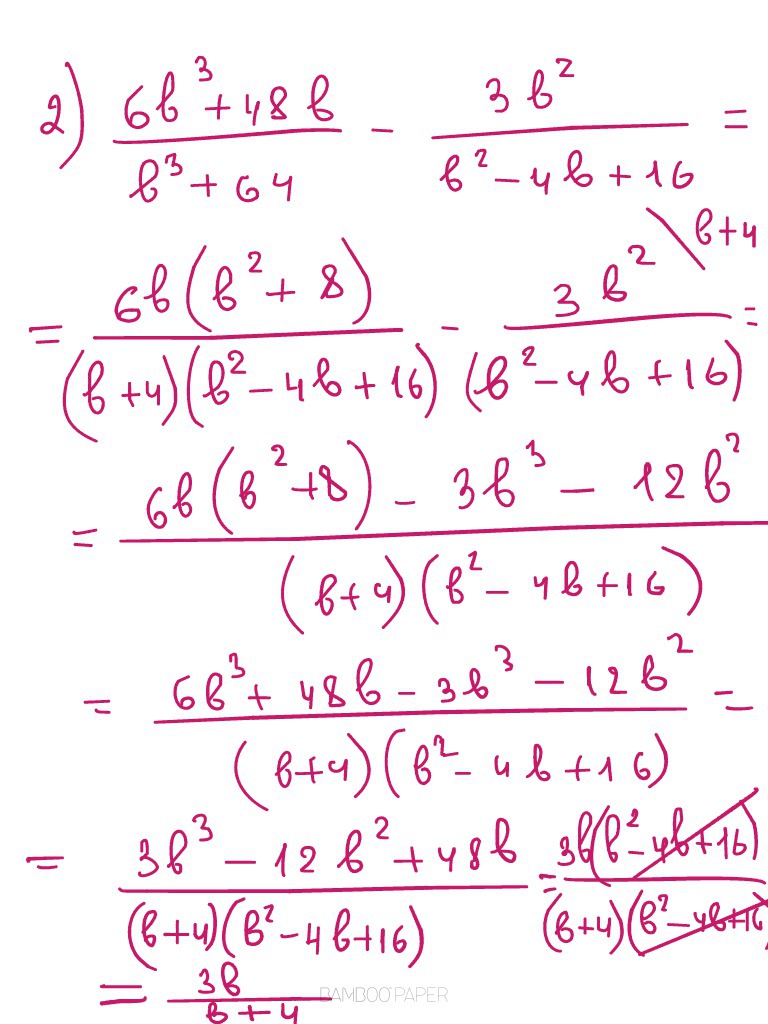 2) (6b³+48b)/(b³+64) - 3b²/(b²-4b+16) =
= 6b(b²+8)/((b+4)(b²-4b+16)) - 3b²\b+4/(b²-4b+16) =
= (6b(b²+8) - 3b³ - 12b²)/((b+4)(b²-4b+16))
= (6b³+48b-3b³-12b²)/((b+4)(b²-4b+16)) =
= (3b³-12b²+48b)/((b+4)(b²-4b+16)) = 3b(b²-4b+16)/((b+4)(b²-4b+16))
= 3b/(b+4)
BAMBOO PAPER